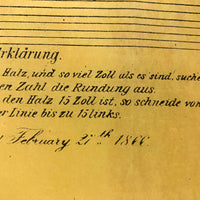 Erklärung.
Halz, und so viel Zoll als es sind, suche
en Zahl die Rundung aus.
den Halz 15 Zoll ist, so schneide von
er Linie bis zu 15 links.
February 27th 1866